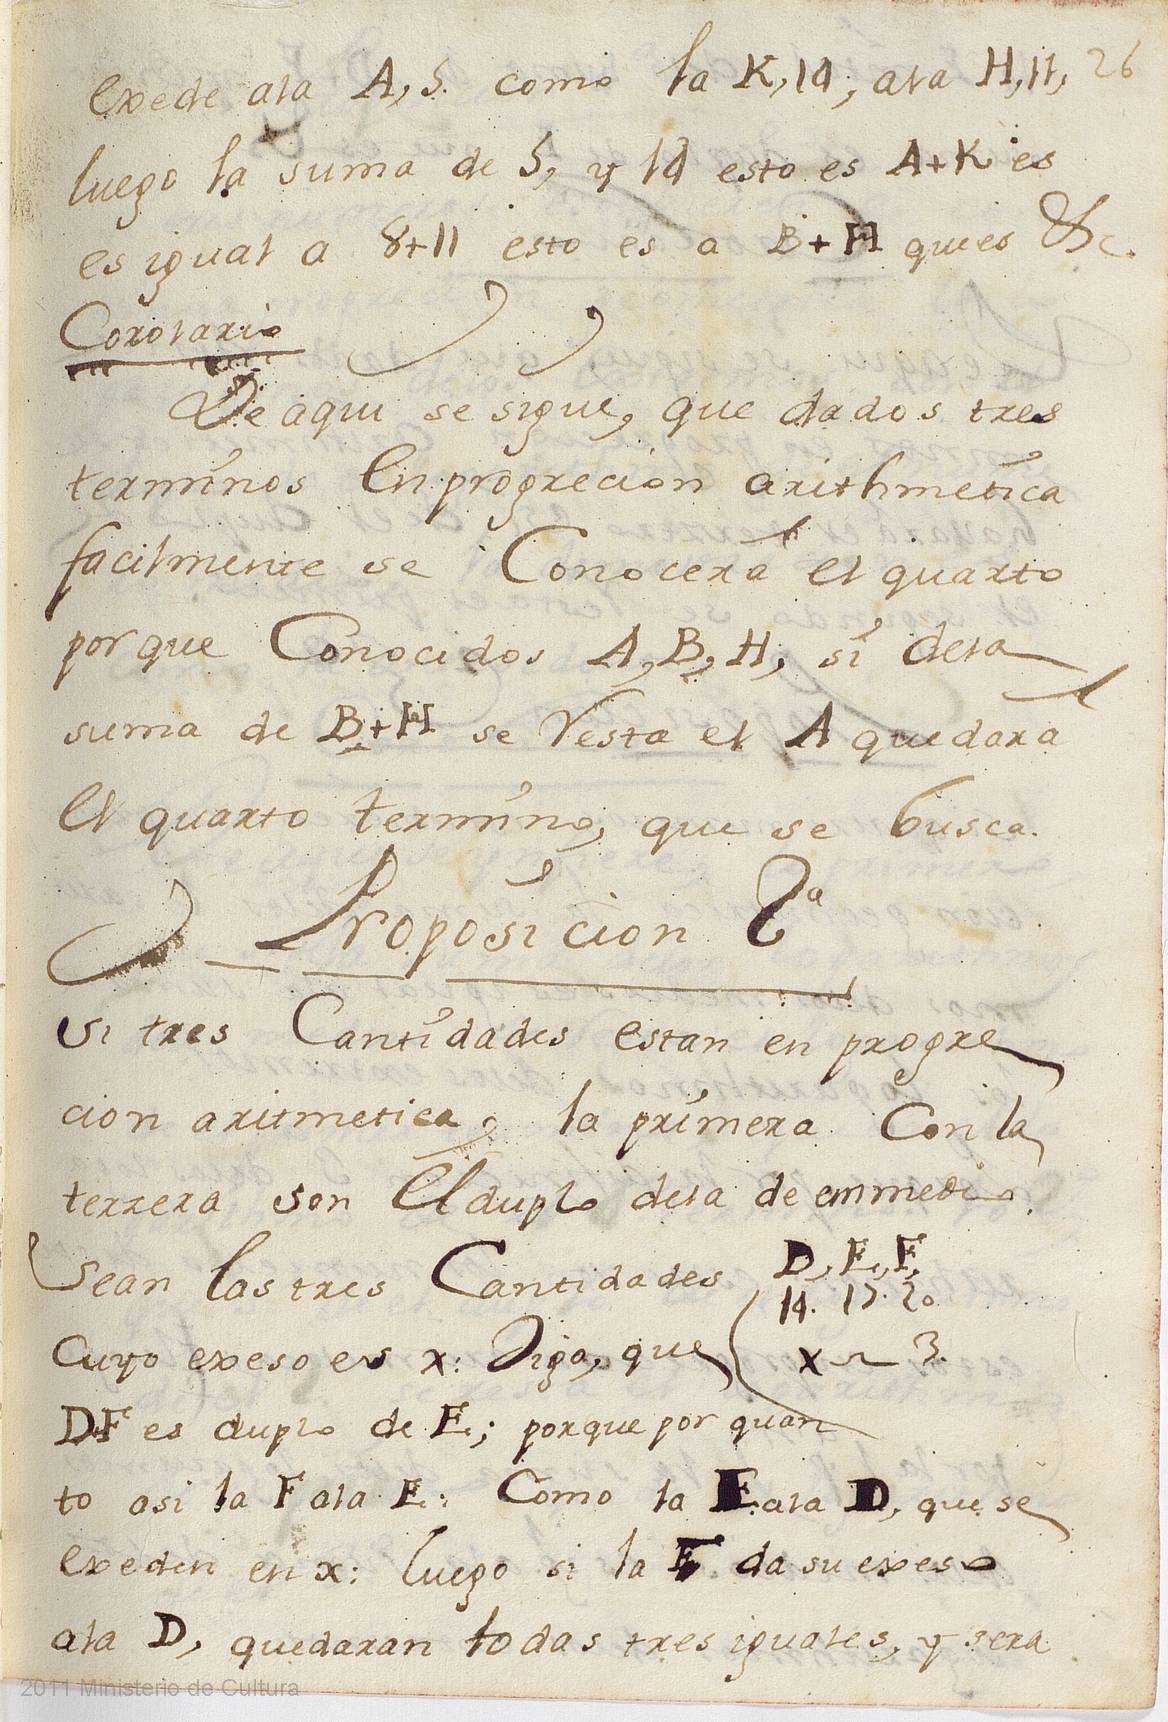 26
exede ala A, 5. como la K, 14; ala H, 11,
luego la suma de 5, y 14 esto es A+K es
es igual a 8+11 esto es a B+H que es &c.
Corolario
De aqui se sigue, que dados tres
terminos en progrecion arithmetica
facilmente se Conocera el quarto
porque Conocidos A, B, H, si dela
suma de B+H se resta el A quedara
el quarto termino, que se busca.
Proposicion 8ª
Si tres Cantidades estan en progre
cion aritmetica, la primera Con la
terzera son el duplo dela de enmedio.
Sean las tres Cantidades D, E, F,
14. 17. 20
Cuyo exeso es x: Digo, que x ~ 3.
D+F es duplo de E; porque por quan
to asi la F ala E: Como la E ala D, que se
exeden en x: luego si la F da su exeso
ala D, quedaran todas tres iguales, y sera
2011 Ministerio de Cultura